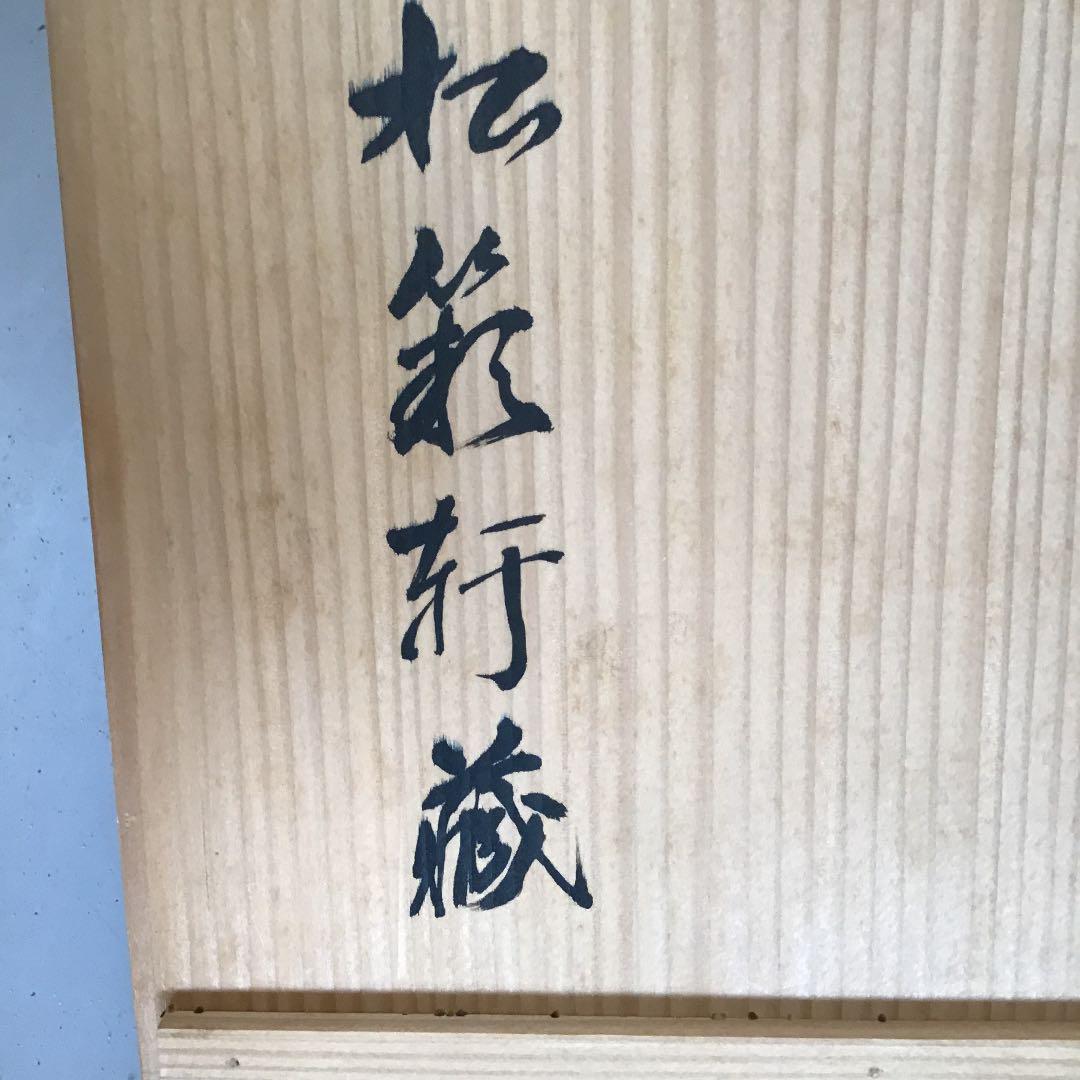 松籟軒藏